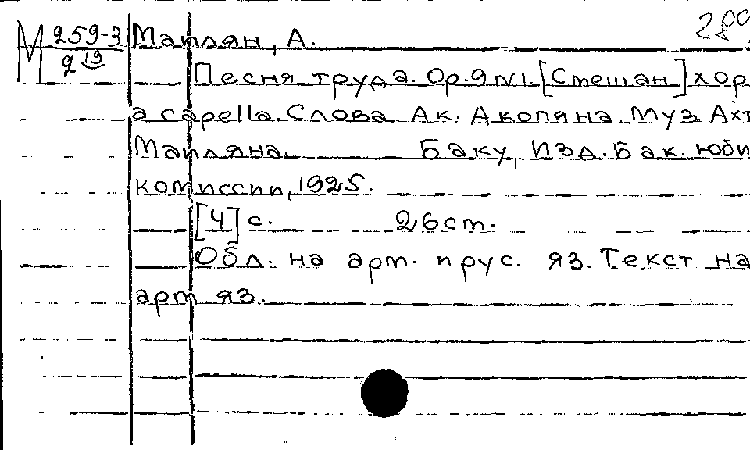 289
М 259-3
9 19
Маилян, А.
Песня труда. Op. 9 №1. [Смешан] хор
a capella. Слова Ак. Акопяна. Муз. Ахт
Маиляна. Баку, Изд. Бак. юби
комиссии, 1925.
[4] с. 26 cm.
Обл. на арм. и рус. яз. Текст на
арм яз.